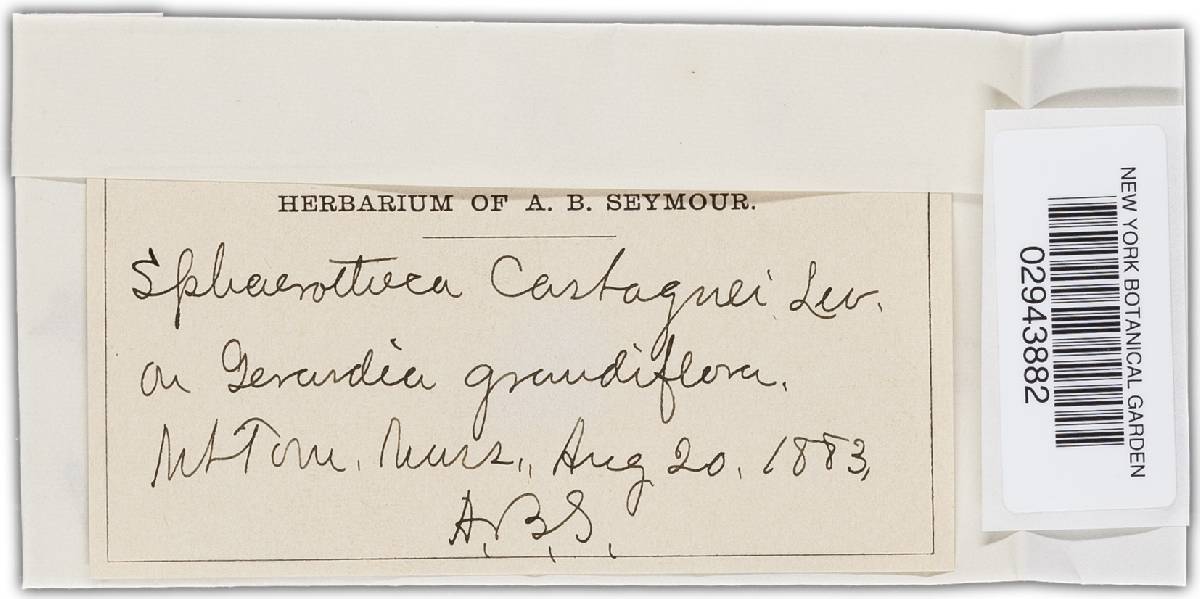 HERBARIUM OF A. B. SEYMOUR.
Sphaerotheca Castagnei Lev.
on Gerardia grandiflora.
Mt Tom, Mass., Aug 20, 1883,
A.B.S.
NEW YORK BOTANICAL GARDEN
02943882